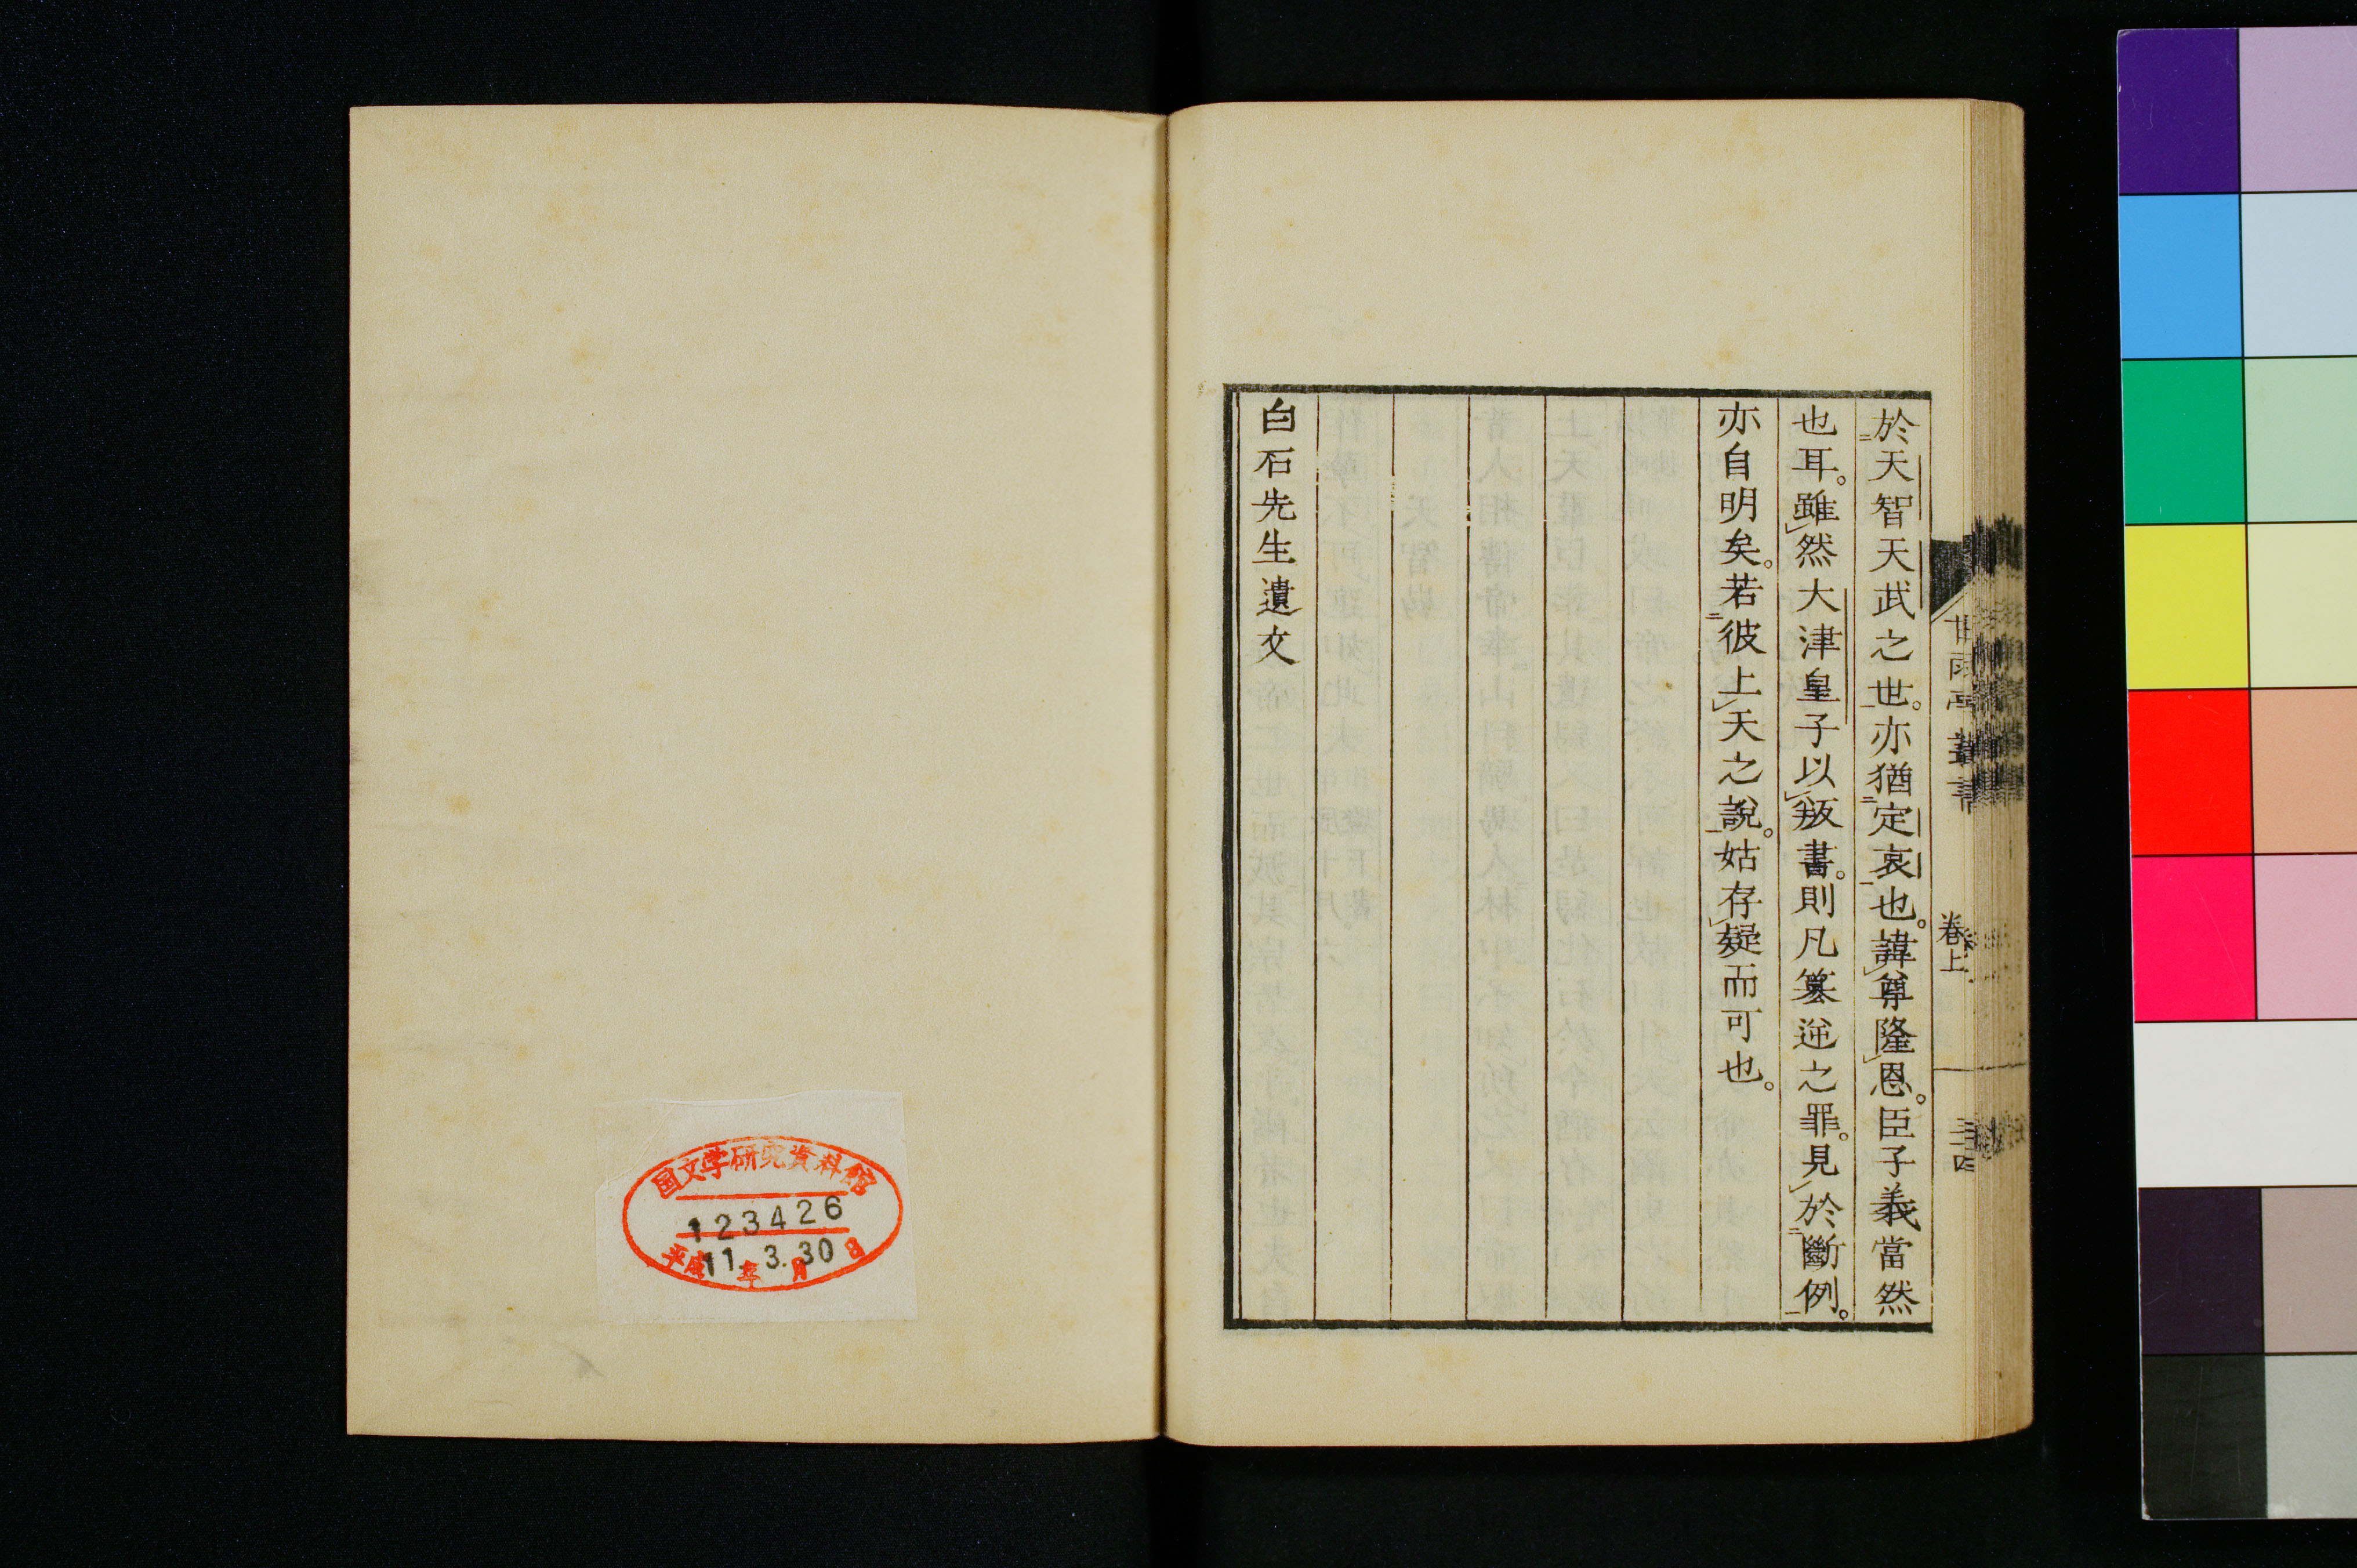 於天智天武之世。亦猶定哀也。諱尊隆恩。臣子義當然
也耳。雖然大津皇子以叛書。則凡篡逆之罪。見於斷例。
亦自明矣。若彼上天之說。姑存疑而可也。
白石先生遺文
甘雨亭叢書
卷上
三十四
国文学研究資料館
123426
平成11年3.月30日